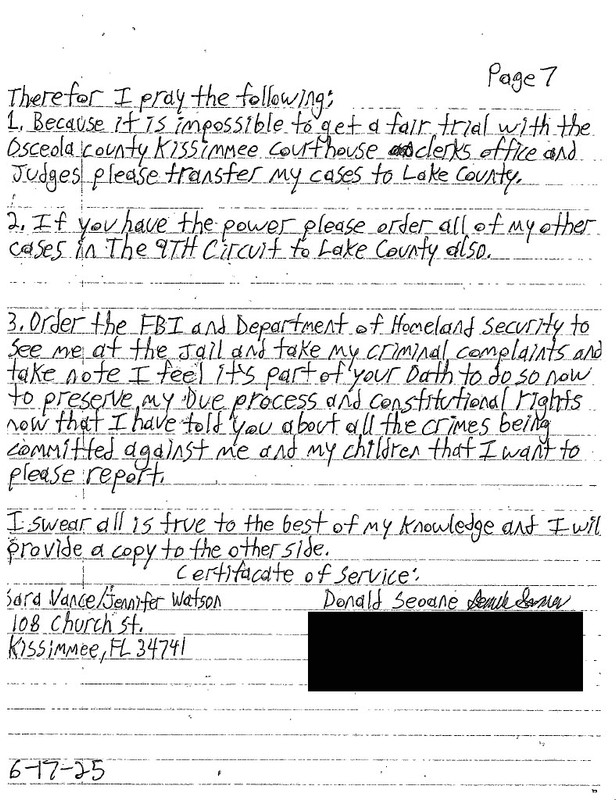 Page 7
Therefor I pray the following:
1. Because it is impossible to get a fair trial with the
Osceola county Kissimmee courthouse clerks office and
Judges please transfer my cases to Lake County.
2. If you have the power please order all of my other
cases in The 9TH Circuit to Lake County also.
3. Order the FBI and Department of Homeland Security to
see me at the jail and take my criminal complaints and
take note I feel it's part of your Oath to do so now
to preserve my Due process and constitutional rights
now that I have told you about all the crimes being
committed against me and my children that I want to
please report.
I swear all is true to the best of my knowledge and I wil
provide a copy to the other side.
Certifacate of Service:
Sara Vance/Jennifer Watson
Donald Seoane
108 Church St.
Kissimmee, FL 34741
6-17-25